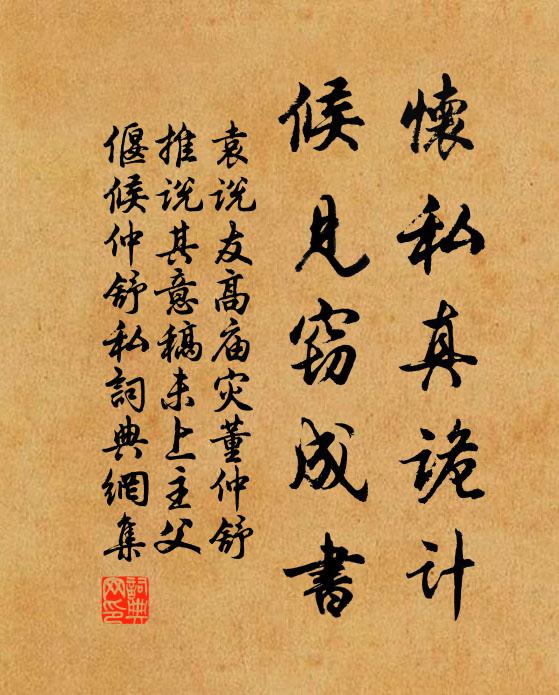 懷私真詭計
候見窃成書
袁说友高庙灾董仲舒
推说其意稿未上主父
偃候仲舒私詞典網集
詞典网印